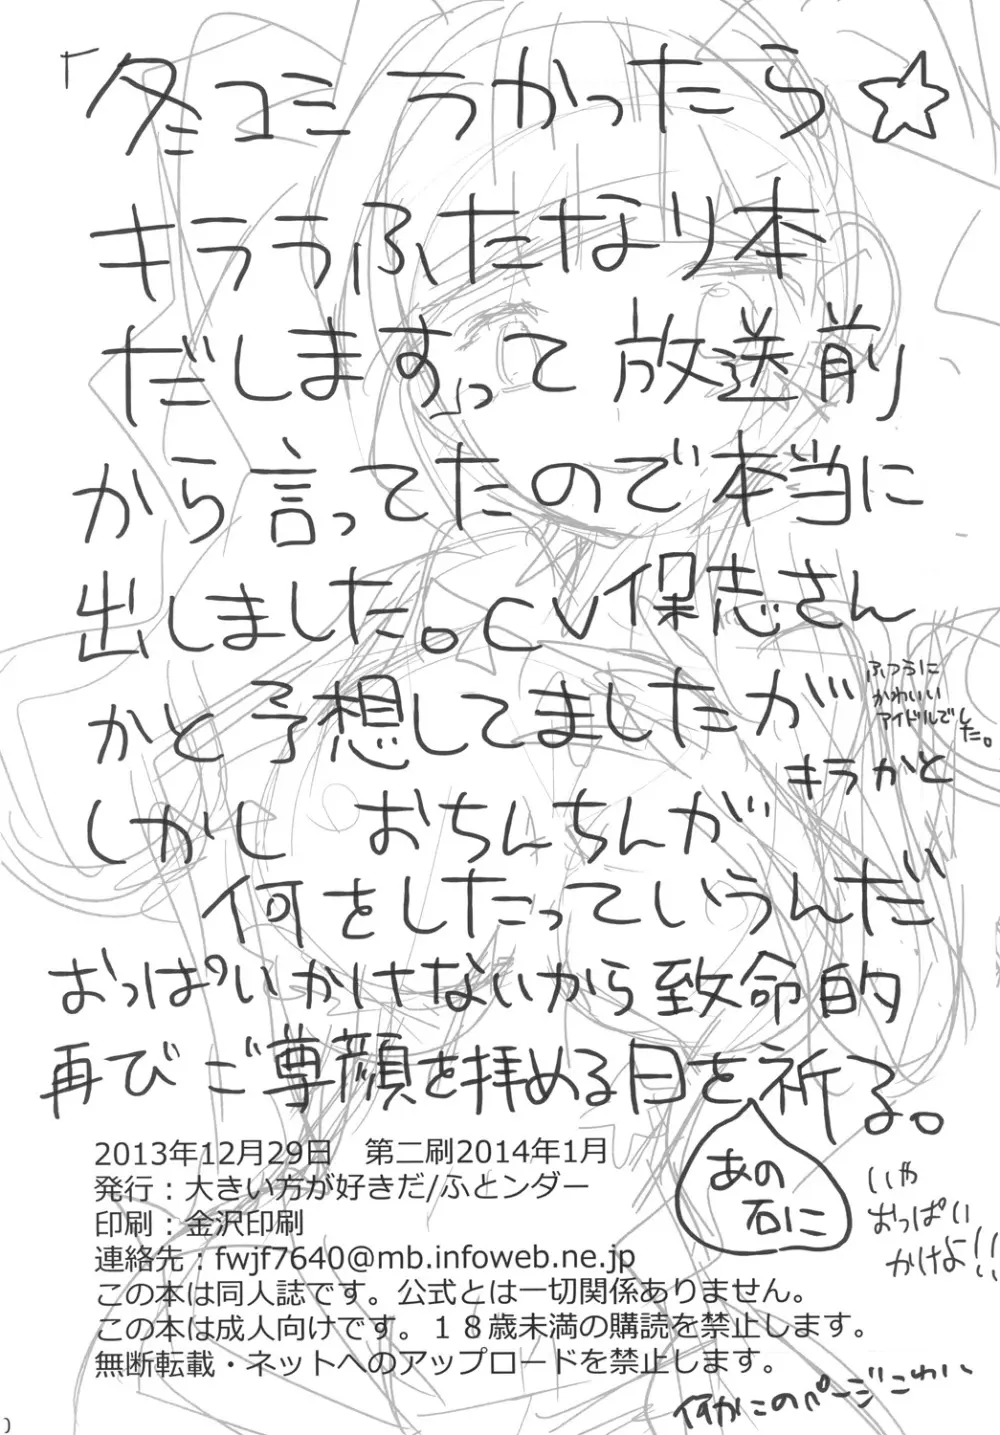 「冬コミうかったら☆
キララふたなり本
だします」って放送前
から言ってたので本当に
出しました。CV保志さん
かと予想してましたが
ふつうに
かわいい
アイドルで
した。
キラかと
しかし おちんちんが
何をしたっていうんだ
おっぱいかけないから致命的
再びご尊顔を拝める日を祈る。
あの
石に
いや
おっぱい
かけよ!!
2013年12月29日　第二刷2014年1月
発行：大きい方が好きだ/ふとンダー
印刷：金沢印刷
連絡先：fwjf7640@mb.infoweb.ne.jp
この本は同人誌です。公式とは一切関係ありません。
この本は成人向けです。１８歳未満の購読を禁止します。
無断転載・ネットへのアップロードを禁止します。
何かこのページこわい